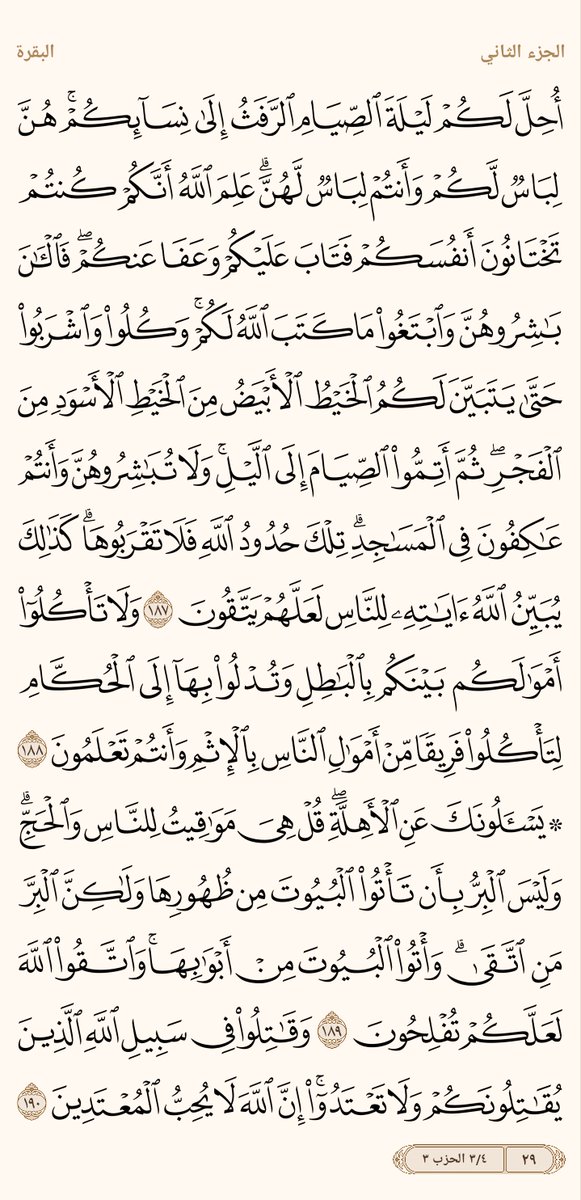 الجزء الثاني
البقرة
أُحِلَّ لَكُمۡ لَيۡلَةَ ٱلصِّيَامِ ٱلرَّفَثُ إِلَىٰ نِسَآئِكُمۡۚ هُنَّ
لِبَاسٞ لَّكُمۡ وَأَنتُمۡ لِبَاسٞ لَّهُنَّۗ عَلِمَ ٱللَّهُ أَنَّكُمۡ كُنتُمۡ
تَخۡتَانُونَ أَنفُسَكُمۡ فَتَابَ عَلَيۡكُمۡ وَعَفَا عَنكُمۡۖ فَٱلۡـَٰٔنَ
بَٰشِرُوهُنَّ وَٱبۡتَغُواْ مَا كَتَبَ ٱللَّهُ لَكُمۡۚ وَكُلُواْ وَٱشۡرَبُواْ
حَتَّىٰ يَتَبَيَّنَ لَكُمُ ٱلۡخَيۡطُ ٱلۡأَبۡيَضُ مِنَ ٱلۡخَيۡطِ ٱلۡأَسۡوَدِ مِنَ
ٱلۡفَجۡرِۖ ثُمَّ أَتِمُّواْ ٱلصِّيَامَ إِلَى ٱلَّيۡلِۚ وَلَا تُبَٰشِرُوهُنَّ وَأَنتُمۡ
عَٰكِفُونَ فِي ٱلۡمَسَٰجِدِۗ تِلۡكَ حُدُودُ ٱللَّهِ فَلَا تَقۡرَبُوهَاۗ كَذَٰلِكَ
يُبَيِّنُ ٱللَّهُ ءَايَٰتِهِۦ لِلنَّاسِ لَعَلَّهُمۡ يَتَّقُونَ ١٨٧ وَلَا تَأۡكُلُوٓاْ
أَمۡوَٰلَكُم بَيۡنَكُم بِٱلۡبَٰطِلِ وَتُدۡلُواْ بِهَآ إِلَى ٱلۡحُكَّامِ
لِتَأۡكُلُواْ فَرِيقٗا مِّنۡ أَمۡوَٰلِ ٱلنَّاسِ بِٱلۡإِثۡمِ وَأَنتُمۡ تَعۡلَمُونَ ١٨٨
۞ يَسۡـَٔلُونَكَ عَنِ ٱلۡأَهِلَّةِۖ قُلۡ هِيَ مَوَٰقِيتُ لِلنَّاسِ وَٱلۡحَجِّۗ
وَلَيۡسَ ٱلۡبِرُّ بِأَن تَأۡتُواْ ٱلۡبُيُوتَ مِن ظُهُورِهَا وَلَٰكِنَّ ٱلۡبِرَّ
مَنِ ٱتَّقَىٰۗ وَأۡتُواْ ٱلۡبُيُوتَ مِنۡ أَبۡوَٰبِهَاۚ وَٱتَّقُواْ ٱللَّهَ
لَعَلَّكُمۡ تُفۡلِحُونَ ١٨٩ وَقَٰتِلُواْ فِي سَبِيلِ ٱللَّهِ ٱلَّذِينَ
يُقَٰتِلُونَكُمۡ وَلَا تَعۡتَدُوٓاْۚ إِنَّ ٱللَّهَ لَا يُحِبُّ ٱلۡمُعۡتَدِينَ ١٩٠
٢٩
٣/٤ الحزب ٣